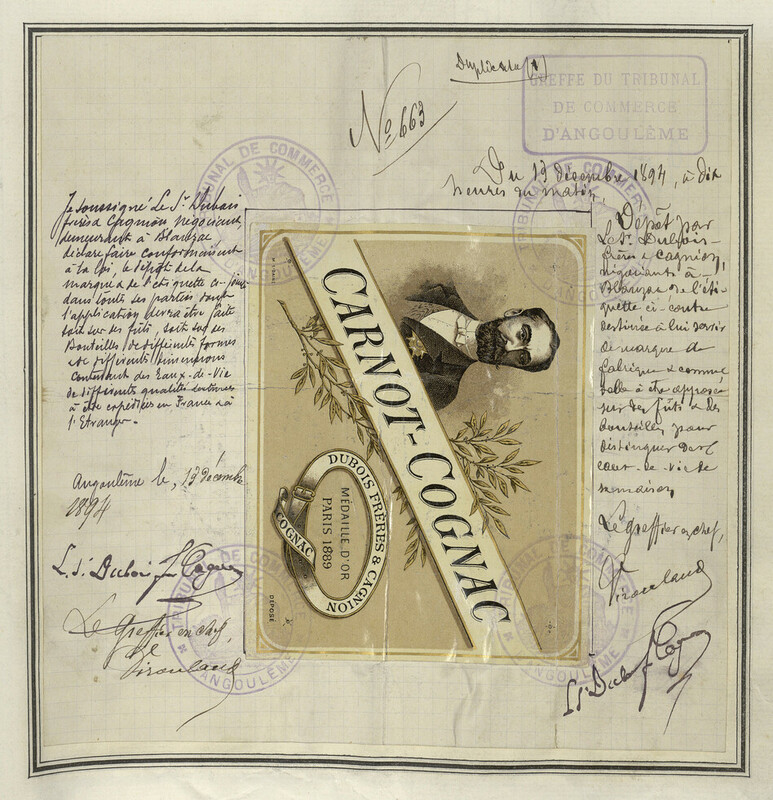 Duplicata (1)
GREFFE DU TRIBUNAL
DE COMMERCE
D'ANGOULÊME
No 663
Du 13 décembre 1894, à dix
heures du matin,
Je soussigné Le Sr. Dubois
frères & Cagnion négociant,
demeurant à Blanzac
déclare faire conformément
à la loi, le dépôt de la
marque & de l'étiquette ci-jointe
dans toutes ses parties dont
l'application devra être faite
soit sur ses fûts, soit sur des
Bouteilles de différentes formes
et de différentes dimensions
contenant des Eaux-de-Vie
de différentes qualités destinées
à être expédiées en France & à
l'Etranger.
Angoulême le, 13 décembre
1894
L. sr Dubois f Cagnion
Le Greffier en chef,
Dépôt par
Le Sr. Dubois
frères & Cagnion,
négociants à
Blanzac de l'éti-
quette ci-contre
destinée à lui servir
de marque de
fabrique & comme
telle à être apposée
sur des fûts & des
bouteilles pour
distinguer des
eaux-de-vie de
sa maison,
Le greffier en chef,
L sr Dubois f Cagnion
CARNOT-COGNAC
DUBOIS FRÈRES & CAGNION
COGNAC
MÉDAILLE D'OR
PARIS 1889
DÉPOSÉ
TRIBUNAL DE COMMERCE
ANGOULÊME
TRIBUNAL DE COMMERCE
TRIBUNAL DE COMMERCE
ANGOULÊME
TRIBUNAL DE COMMERCE
ANGOULÊME